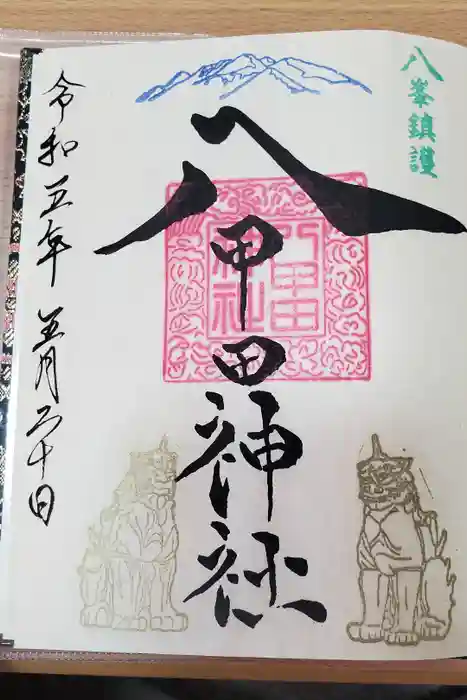 八峯鎮護
八甲田神社
八甲田
神社
令和五年 五月二十日